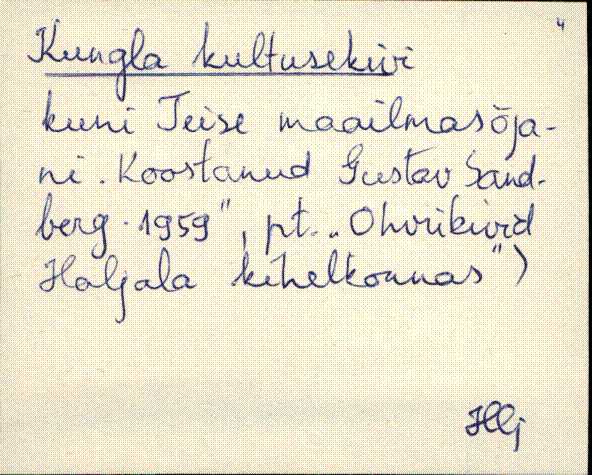 4
Kungla kultusekivi
kuni Teise maailmasõja-
ni. Koostanud Gustav Sand-
berg. 1959", pt. „Ohvrikivid
Haljala kihelkonnas")
Hlj